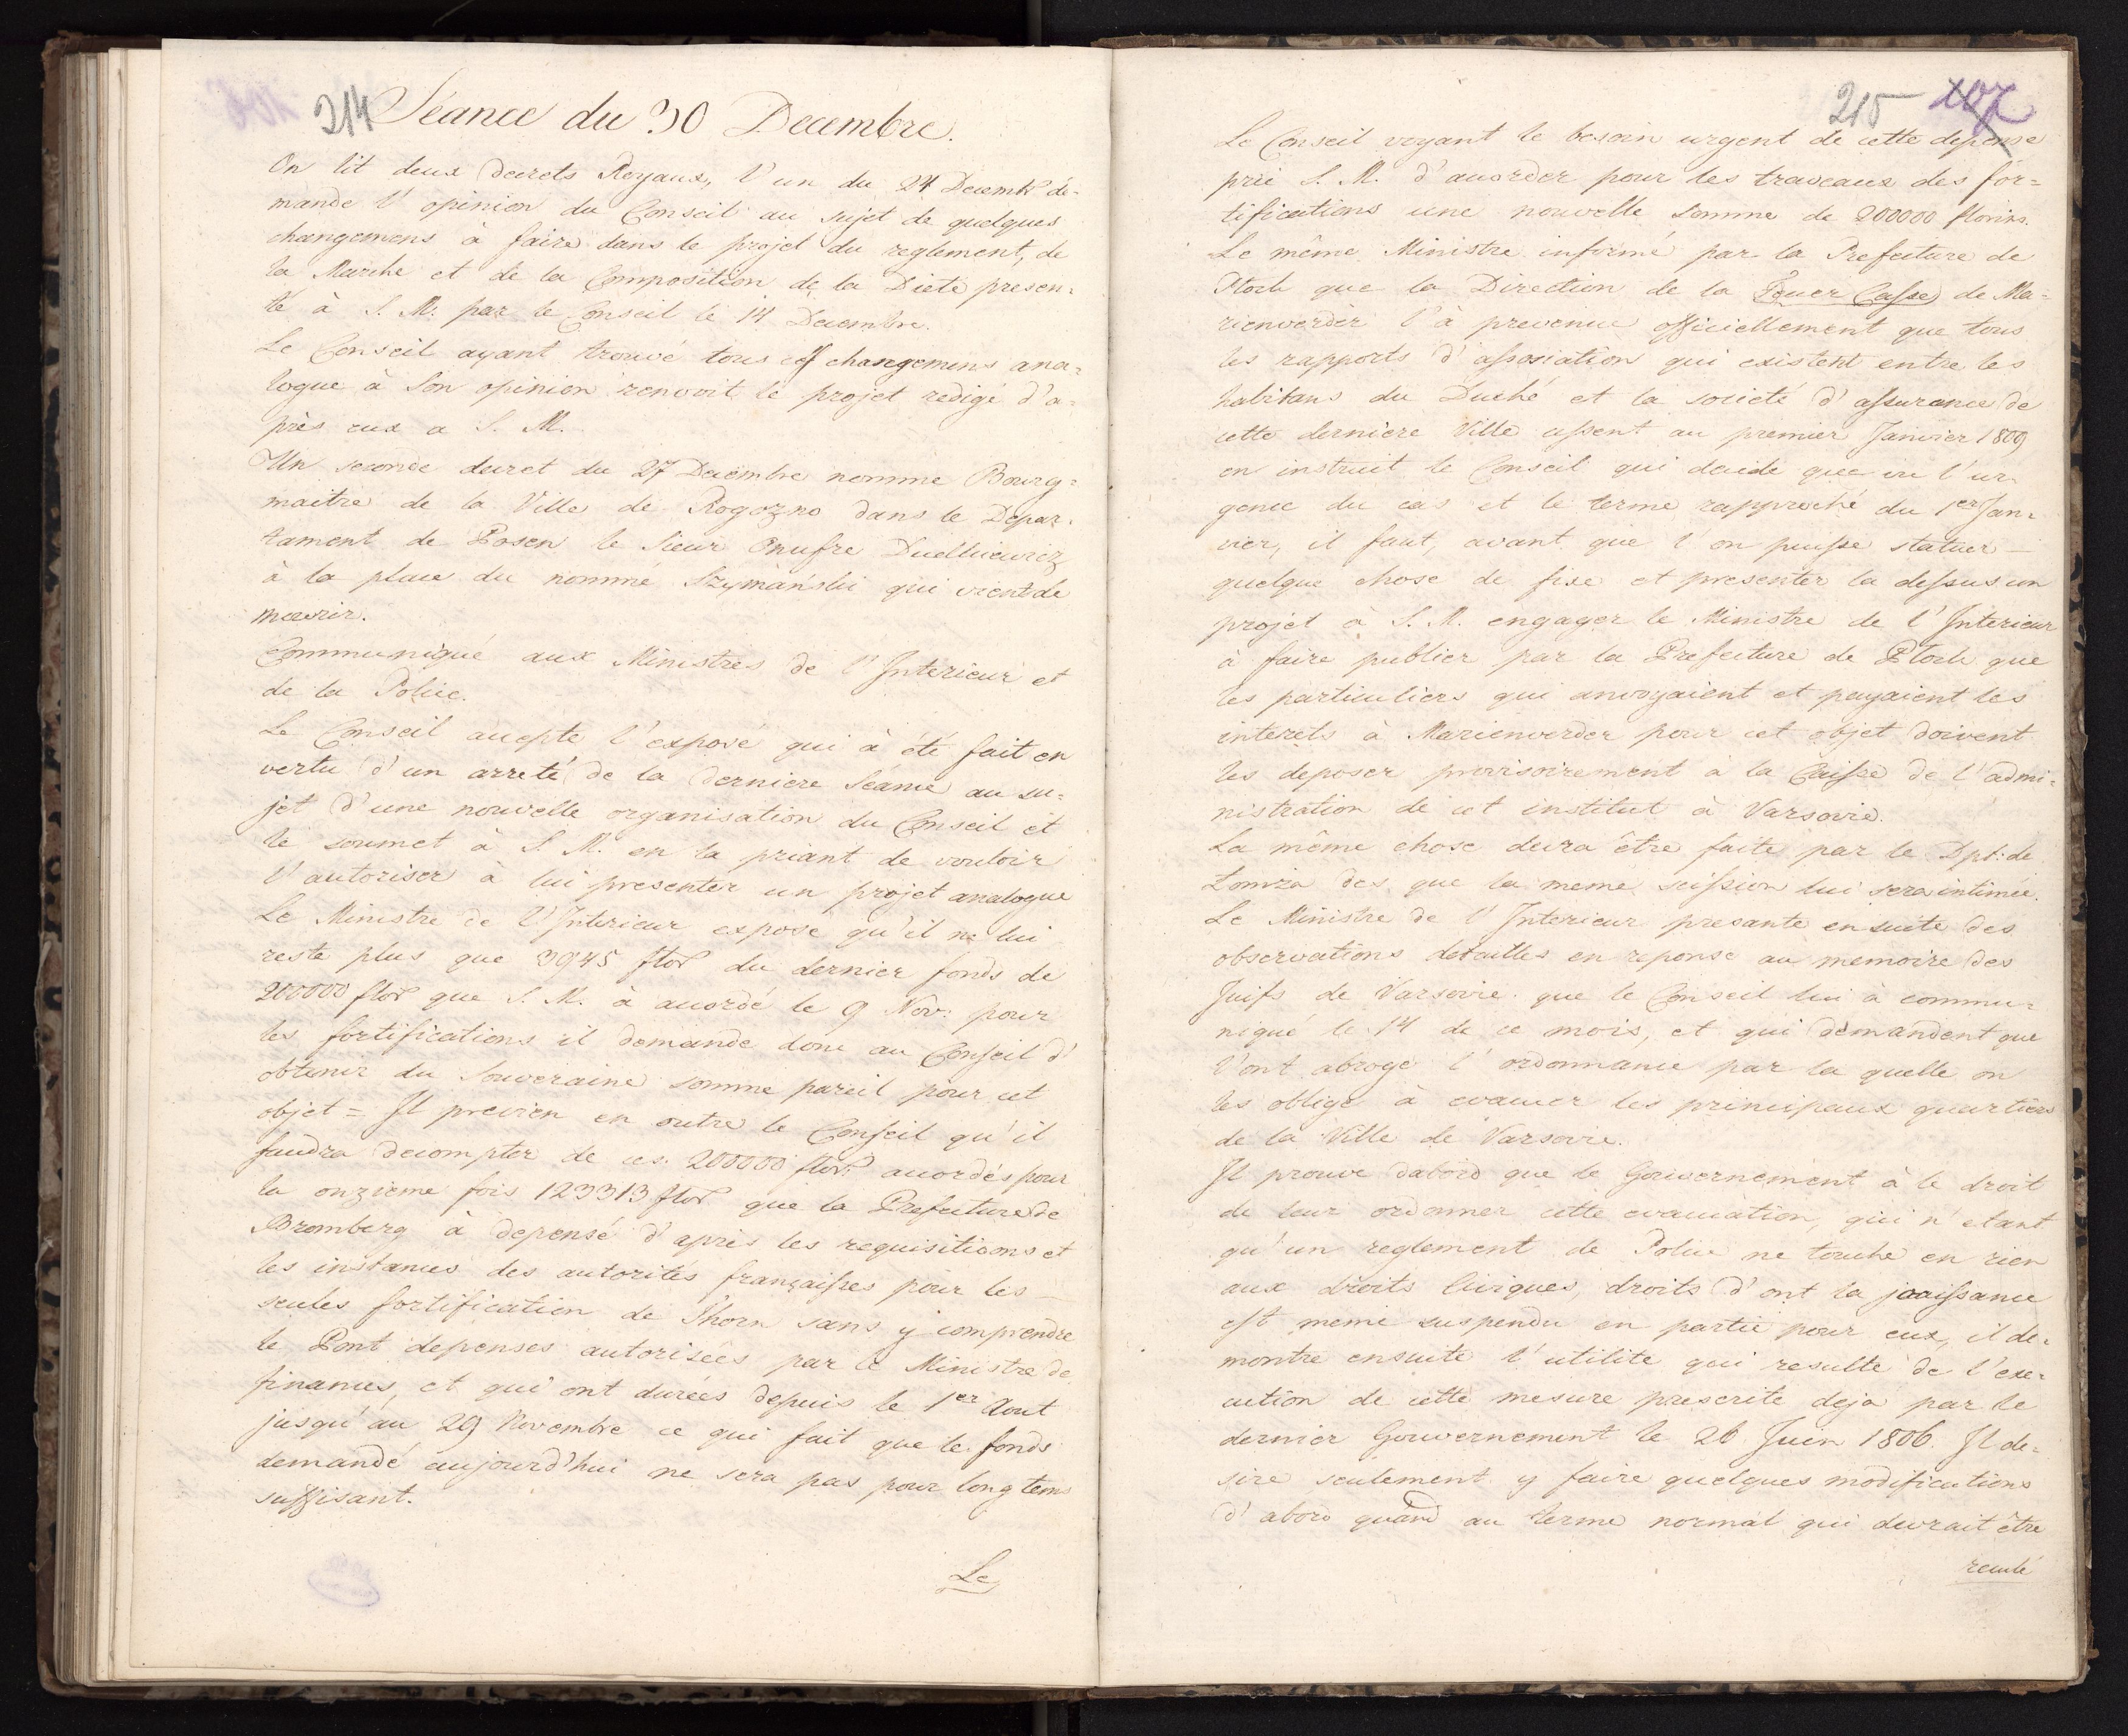 214 Séance du 30 Decembre.
On lit deux decrets Royaux, l'un du 24 Decembr dé-
mande l'opinion du Conseil au sujet de quelques
changemens à faire dans le projet du reglement, de
la Marche et de la Composition de la Diete presen=
té à S. M: par le Conseil le 14 Decembre.
Le Conseil ayant trouvé tous ces changemens ana=
logue à Son opinion renvoit le projet redigé d'a=
près eux a S. M.
Un seconde decret du 27 Decembre nomme Bourg=
maitre de la Ville de Rogozno dans le Depar=
tament de Posen le Sieur Onufre
à la place du nommé Szymański qui vient de
mourir.
Communiqué aux Ministres de l'Interieur et
de la Police.
Le Conseil accepte l'exposé qui à été fait en
vertu d'un arreté de la derniere Séance au su=
jet d'une nouvelle organisation du Conseil et
le soumet à S. M. en la priant de vouloir
l'autoriser à lui presenter un projet analogue
Le Ministre de l'Interieur expose qu'il ne lui
reste plus que 3945 flor du dernier fonds de
200000 flor que S. M. à acordé le 9 Nov: pour
les fortifications il demande donc au Conseil d'
obtenir du Souveraine somme pareil pour cet
objet = Il previen en outre le Conseil qu'il
faudra decompter de ces 200000 flor: acordés pour
la onzieme fois 123313 flor que la Prefecture de
Bromberg à depensé d'après les requisitions et
les instances des autorités françaises pour les —
seules fortification de Thorn sans y comprendre
le Pont depenses autorisées par le Ministre de
finances, et qui ont durées depuis le 1er Aout
jusqu'au 29 Novembre ce qui fait que le fonds
demandé aujourd'hui ne sera pas pour longtems
suffisant.
Le
215 107
Le Conseil voyant le besoin urgent de cette depense
prie S. M. d'acorder pour les traveaux des for=
tifications une nouvelle somme de 200000 florins.
Le même Ministre informé par la Prefecture de
Plock que la Direction de la Feuer Casse de Ma=
rienverder l'à prevenue officiellement que tous
les rapports d'assosiation qui existent entre les
habitans du Duché et la societé d'assurance de
cette derniere Ville cessent au premier Janvier 1809
en instruit le Conseil qui decide que vu l'ur=
gence du cas et le terme rapproché du 1er Jan=
vier, il faut, avant que l'on puisse statuer —
quelque chose de fixe et presenter la dessus un
projet à S. M. engager le Ministre de l'Interieur
à faire publier par la Prefecture de Plock que
les particuliers qui anvoyaient et payaient les
interets à Marienwerder pour cet objet doivent
les deposer provisoirement à la Caisse de l'admi=
nistration de cet institut à Varsovie.
La même chose devra être faite par le Dpt: de
Lomza des que la meme scission lui sera intimée.
Le Ministre de l'Interieur presante ensuite des
observations detailles en reponse au memoire des
Juifs de Varsovie que le Conseil lui à commu=
niqué le 14 de ce mois, et qui demandent que
l'ont abroge l'ordonnance par la quelle on
les oblige à evacuer les principaux quartiers
de la Ville de Varsovie.
Il prouve dabord que le Gouvernement à le droit
de leur ordonner cette evacuation, qui n'etant
qu'un reglement de Police ne touche en rien
aux droits Civiques, droits d'ont la jouissance
est meme suspendu en partie pour eux, il de=
montre ensuite l'utilite qui resulte de l'exe=
cution de cette mesure prescrite deja par le
dernier Gouvernement le 26 Juin 1806. Il de=
sire seulement y faire quelques modifications
d'abord quand au terme normal qui devrait être
reculé